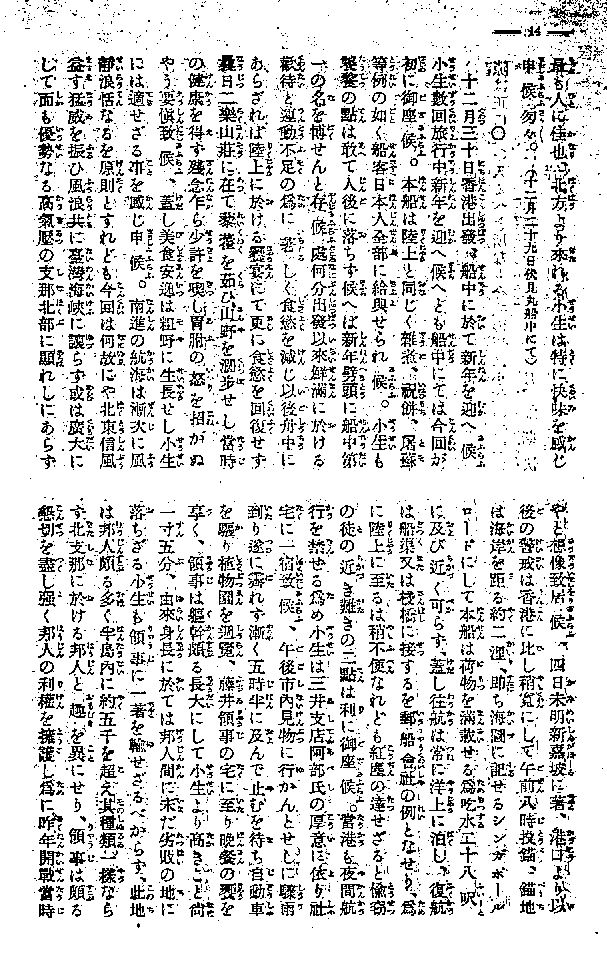 14
最も人に佳也、北方より來れる小生は特に快味を感じ
申候。匆々。(十二月二十九日伏見丸船中にて)
十二月三十日香港出發、船中に於て新年を迎へ候
小生數回旅行中新年を迎へ候へども船中にては今回が
初に御座候。本船は陸上と同じく雜煮、祝餅、屠蘇
等例の如く船客日本人全部に給與せられ候。小生も
整餐の點は敢て人後に落ちず候へば新年劈頭に船中第
一の名を博せんと存候處何分出發以來鮮滿に於ける
歡待と運動不足の爲に著しく食慾を減じ以後舟中に
あらざれば陸上に於ける饗宴にて更に食慾を回復せず
曩日二樂山莊に在て藜藿を茹ひ山野を濶歩せし當時
の健康を得ず殘念乍ら少許を喫し胃腑の怒を招がぬ
やう要愼致候、蓋し美食安逸は粗野に生長せし小生
には適せざる事を感じ申候。南進の航海は漸次に風
靜浪恬なるを原則とすれども今回は何故にや北東信風
益す猛威を振ひ風浪共に臺灣海峽に讓らず或は廣大に
して而も優勢なる高氣壓の支那北部に顯れしにあらず
やと想像致居候、四日未明新嘉坡に著、港口より以
後の警戒は香港に比し稍寬にして午前八時投錨、錨地
は海岸を距る約二浬、即ち海圖に記せるシンガポール
ロードにして本船は荷物を滿載せる爲吃水二十八呎
に及び近く可らず、蓋し往航は常に洋上に泊し、復航
は船渠又は棧橋に接するを郵船會社の例となせり、爲
に陸上に至るは稍不便なれども紅塵の達せざると偸竊
の徒の近き難きの二點は利に御座候。當港も夜間航
行を禁せる爲め小生は三井支店阿部氏の厚意に依り社
宅に一宿致候、午後市內見物に行かんとせしに驟雨
到り遂に霽れず漸く五時半に及んで止むを待ち自動車
を驅り植物園を過覽、藤井領事の宅に至り晚餐の饗を
享く、領事は軀幹頗る長大にして小生より高きこと尙
一寸五分、由來身長に於ては邦人間に未だ劣敗の地に
落ちざる小生も領事に一著を輸せざるべからず、此地
は邦人頗る多く半島內に約五千を超え其種類一樣なら
ず北支那に於ける邦人と趣を異にせり、領事は頗る
懇切を盡し強く邦人の利權を擁護し爲に昨年開戰當時